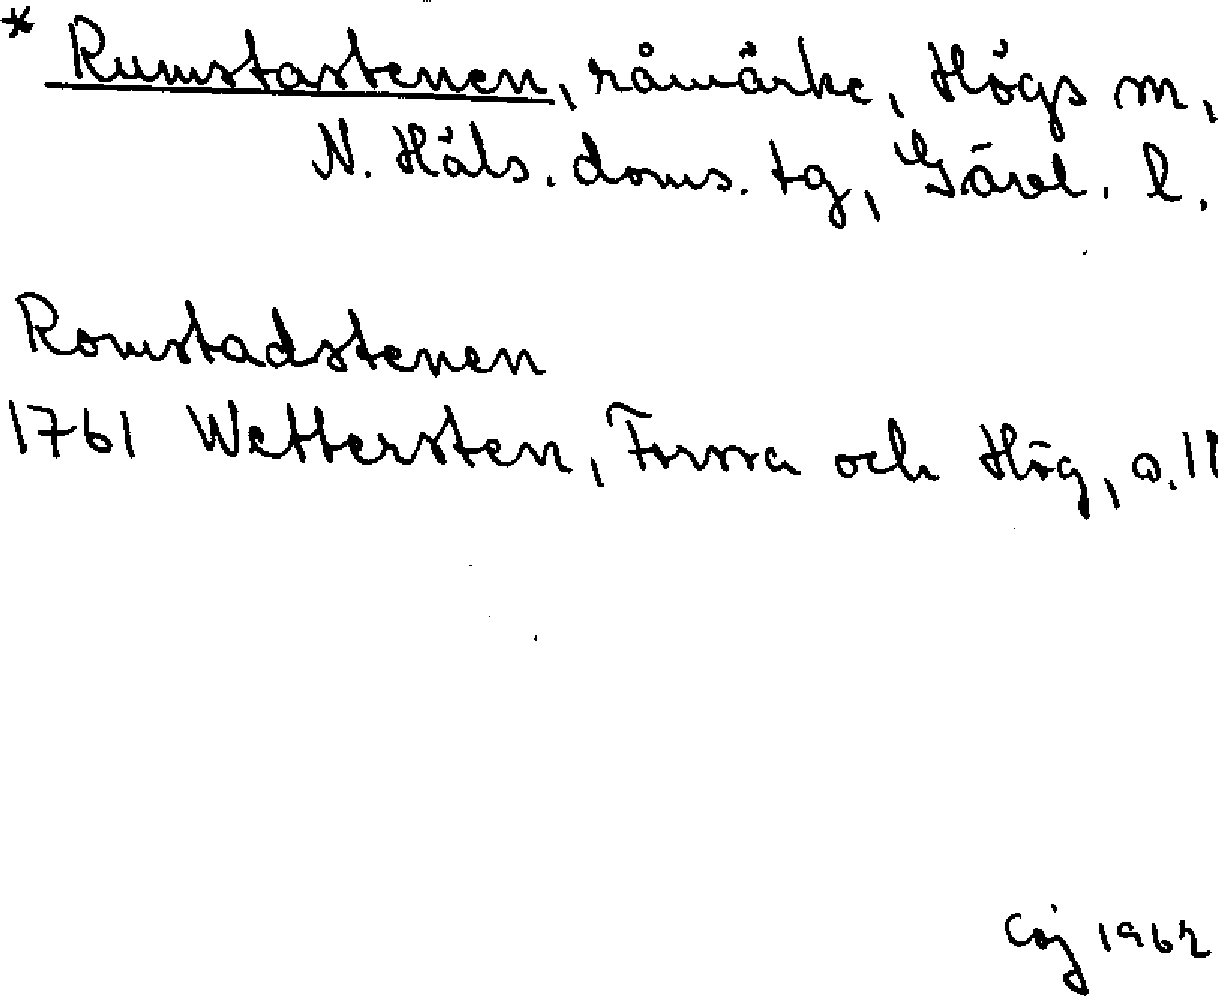 * Rumstastenen, råmärke, Högs sn,
N. Häls. doms. tg, Gävl. l.
Romstadstenen
1761 Wettersten, Forssa och Hög, s. 11
Coj 1962